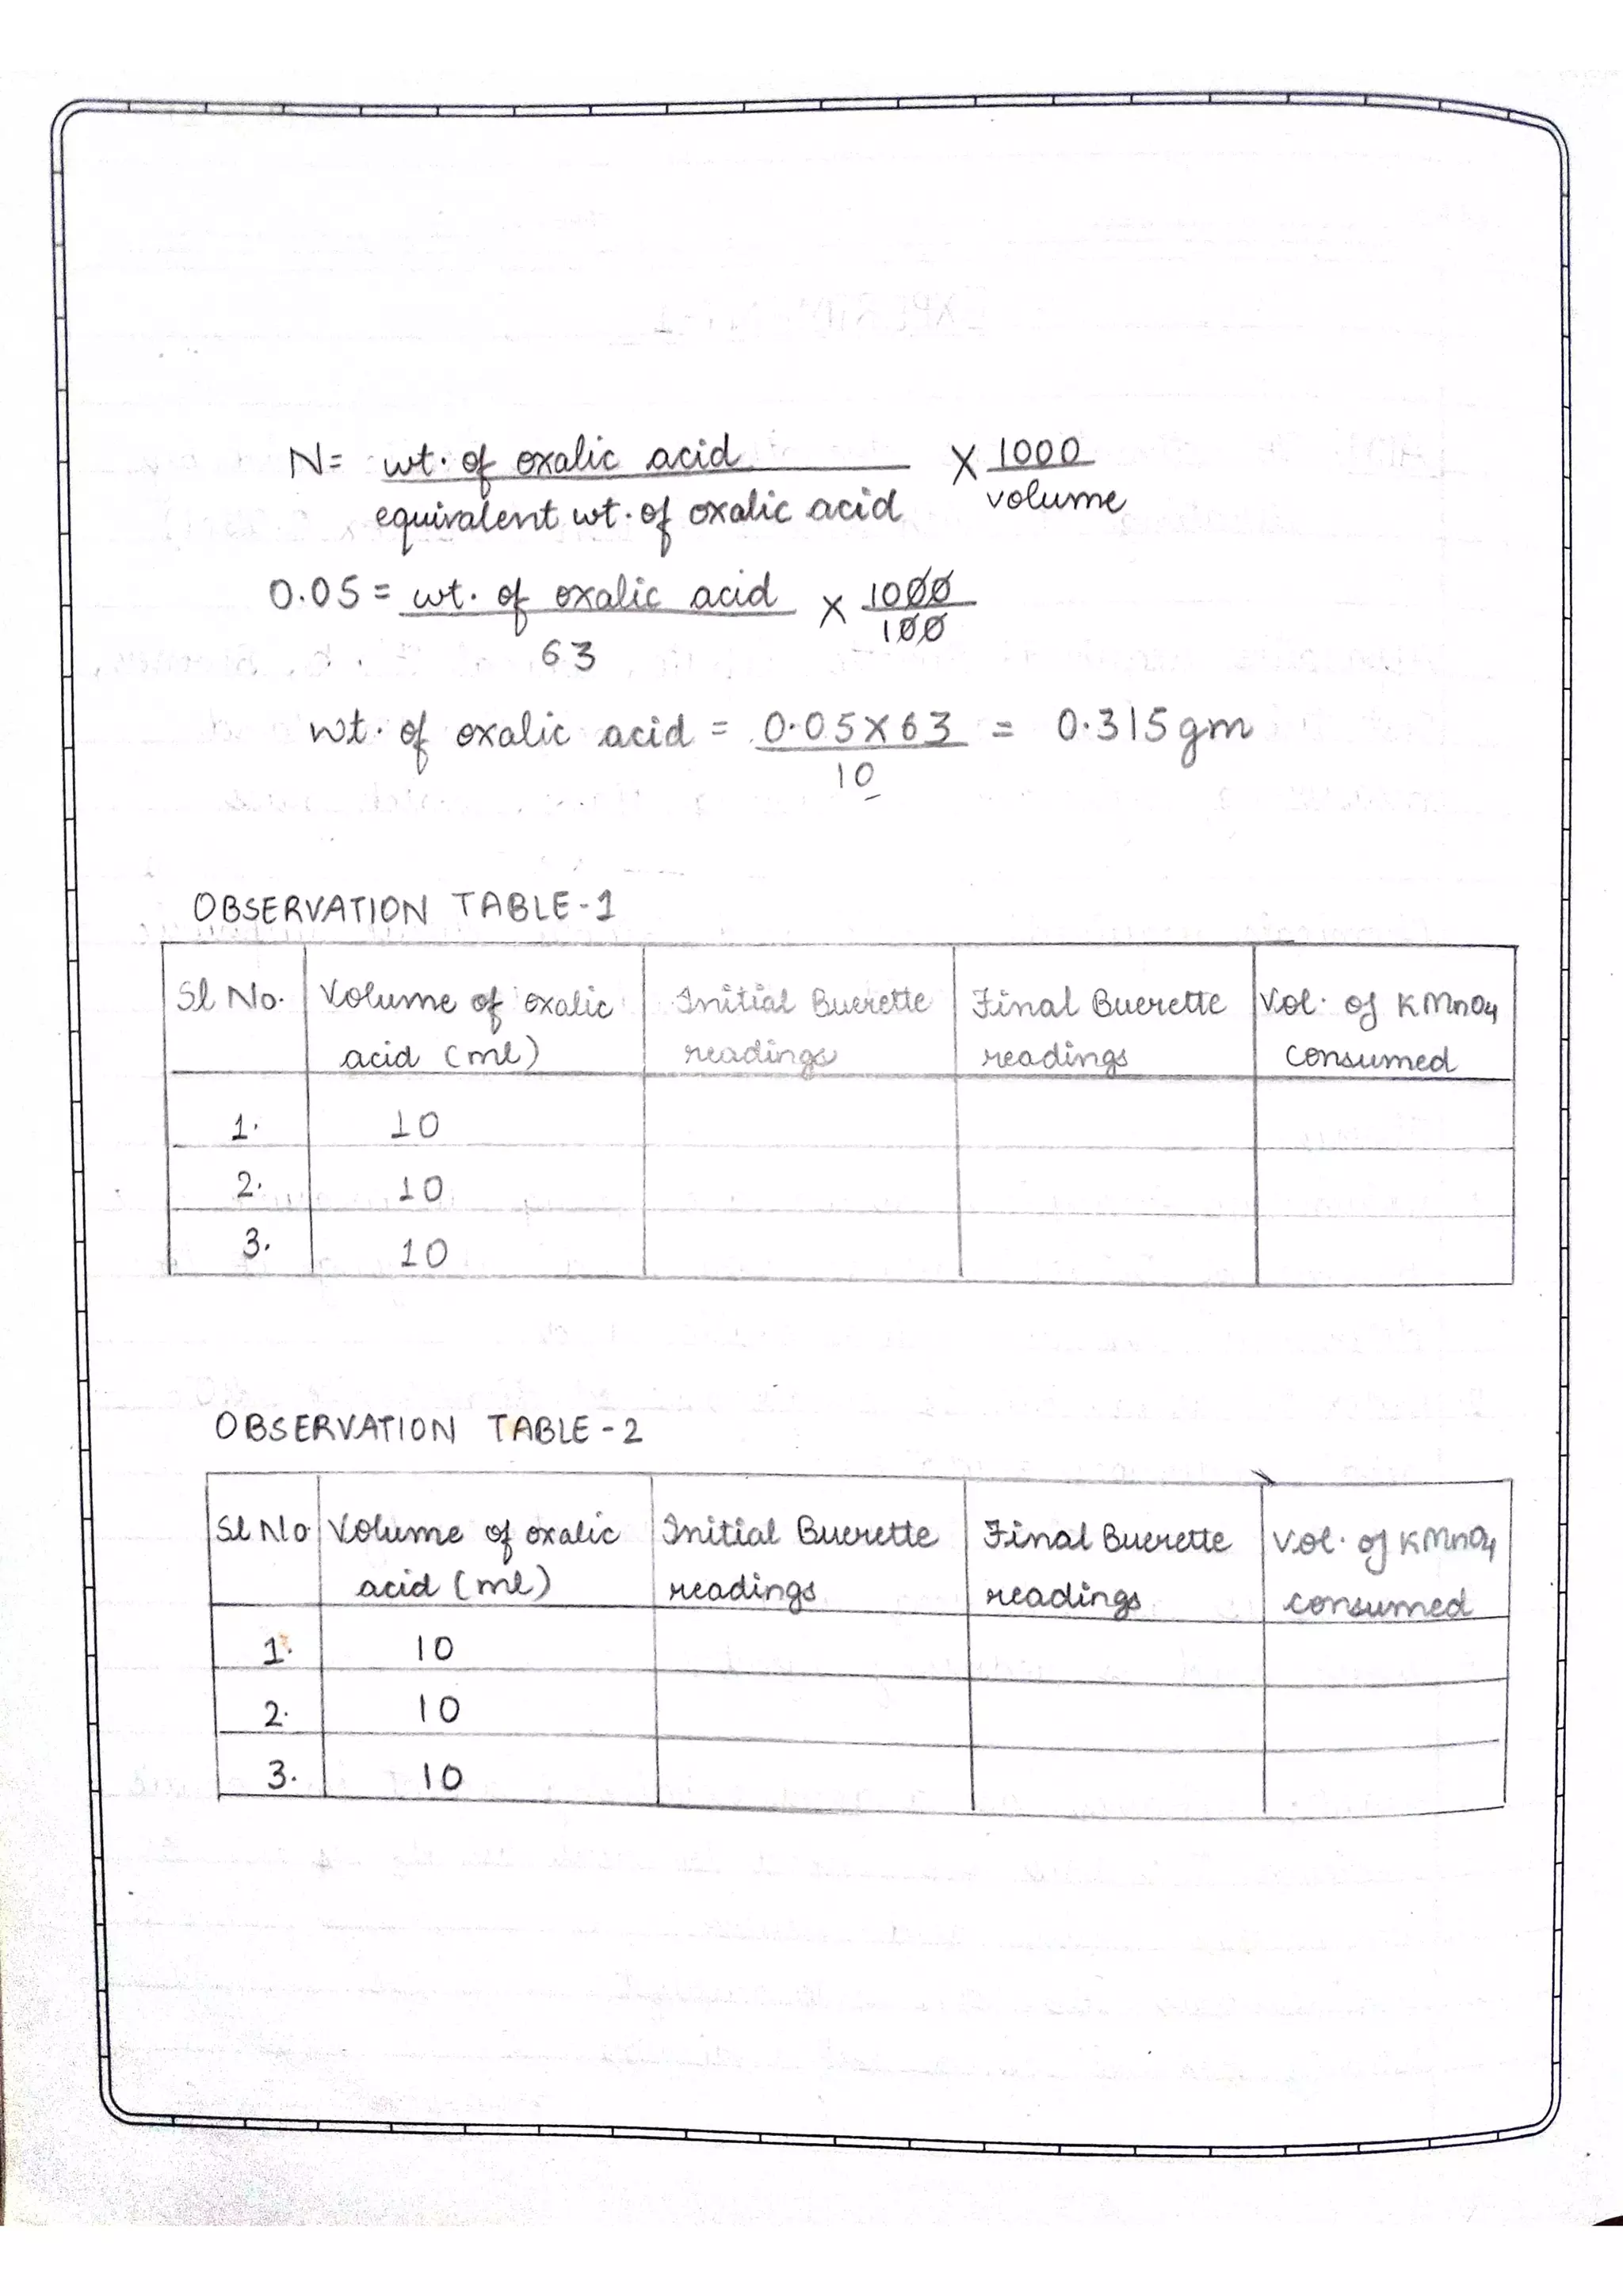 N= wt. of oxalic acid X 1000
equivalent wt. of oxalic acid volume
0.05 = wt. of oxalic acid X 1000
63 100
wt. of oxalic acid = 0.05X63 = 0.315gm
10
OBSERVATION TABLE-1
Sl No. Volume of oxalic Initial Buerette Final Buerette Vol. of KMnO4
acid (ml) readings readings consumed
1. 10
2. 10
3. 10
OBSERVATION TABLE-2
Sl No. Volume of oxalic Initial Buerette Final Buerette Vol. of KMnO4
acid (ml) readings readings consumed
1. 10
2. 10
3. 10